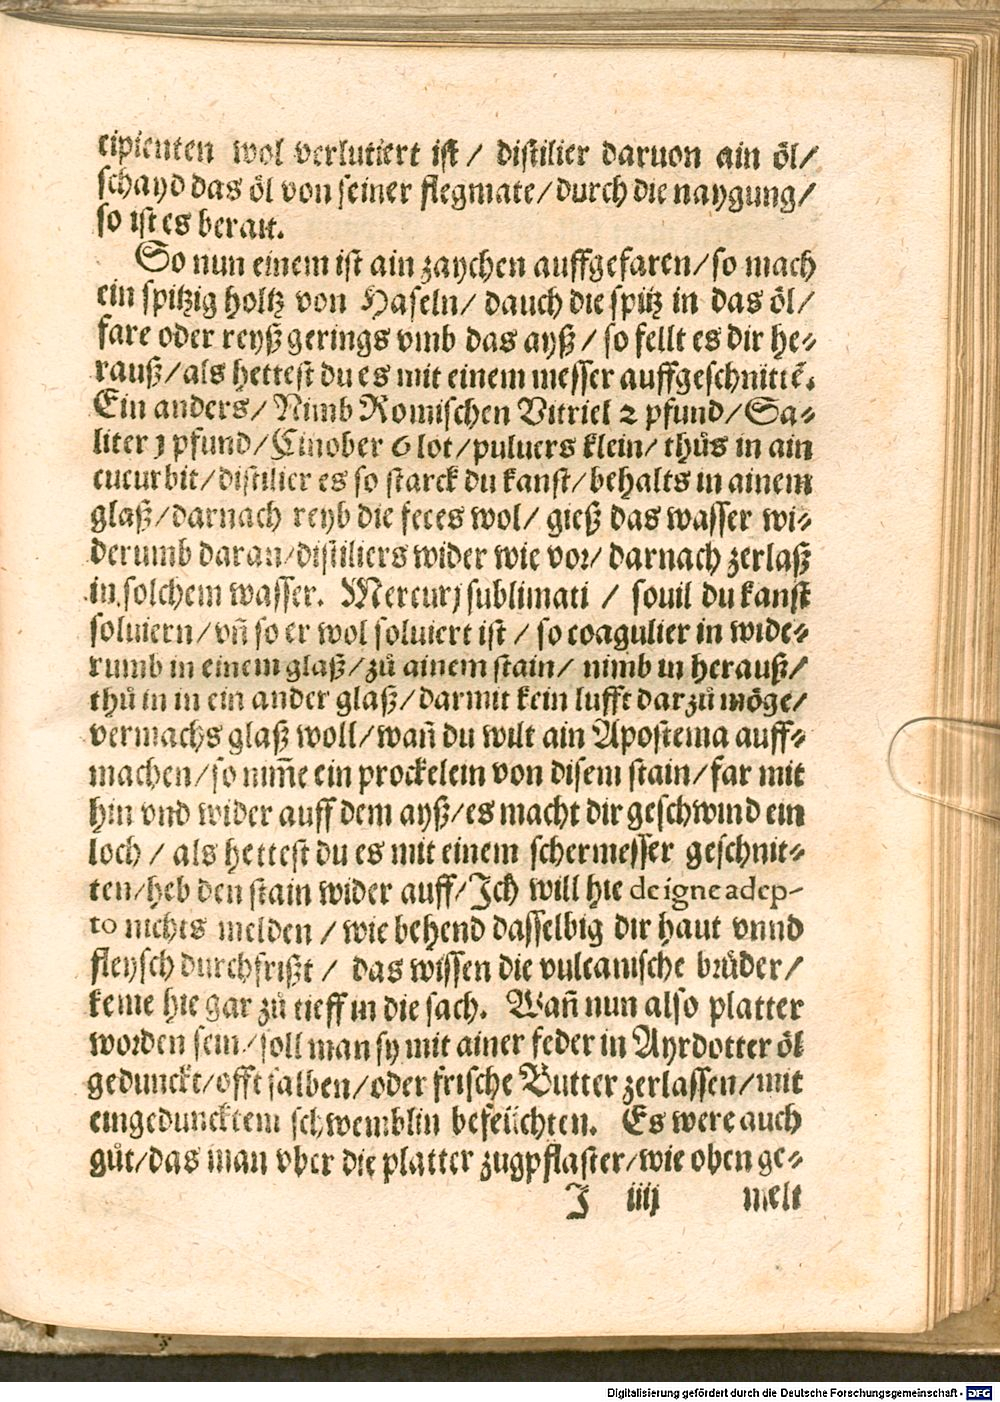 cipienten wol verlutiert ist / distilier daruon ain öl/
schayd das öl von seiner flegmate/durch die naygung/
so ist es berait.
So nun einem ist ain zaychen auffgefaren/so mach
ein spitzig holtz von Haseln/ dauch die spitz in das öl/
fare oder reyß gerings vmb das ayß / so fellt es dir he-
rauß/als hettest du es mit einem messer auffgeschnittē.
Ein anders/ Nimb Romischen Vitriel 2 pfund/ Sa-
liter j pfund/ Cinober 6 lot/puluers klein/ thůs in ain
cucurbit/distilier es so starck du kanst/behalts in ainem
glaß/darnach reyb die feces wol/ gieß das wasser wi-
derumb daran/distiliers wider wie vor/ darnach zerlaß
in solchem wasser. Mercurj sublimati / souil du kanst
soluiern/vñ so er wol soluiert ist / so coagulier in wide-
rumb in einem glaß/zů ainem stain/ nimb in herauß/
thů in in ein ander glaß/darmit kein lufft darzů möge/
vermachs glaß woll/wañ du wilt ain Apostema auff-
machen/so nim̄e ein prockelein von disem stain/far mit
hin vnd wider auff dem ayß/es macht dir geschwind ein
loch / als hettest du es mit einem schermesser geschnit-
ten/heb den stain wider auff/Ich will hie de igne adep-
to nichts melden / wie behend dasselbig dir haut vnnd
fleysch durchfrißt / das wissen die vulcanische brůder/
keme hie gar zů tieff in die sach. Wañ nun also platter
worden sein/soll man sy mit ainer feder in Ayrdotter öl
gedunckt/offt salben/oder frische Butter zerlassen/mit
eingeduncktem schwemblin befeüchten. Es were auch
gůt/das man vber die platter zugpflaster/wie oben ge-
J iiij melt
Digitalisierung gefördert durch die Deutsche Forschungsgemeinschaft - DFG